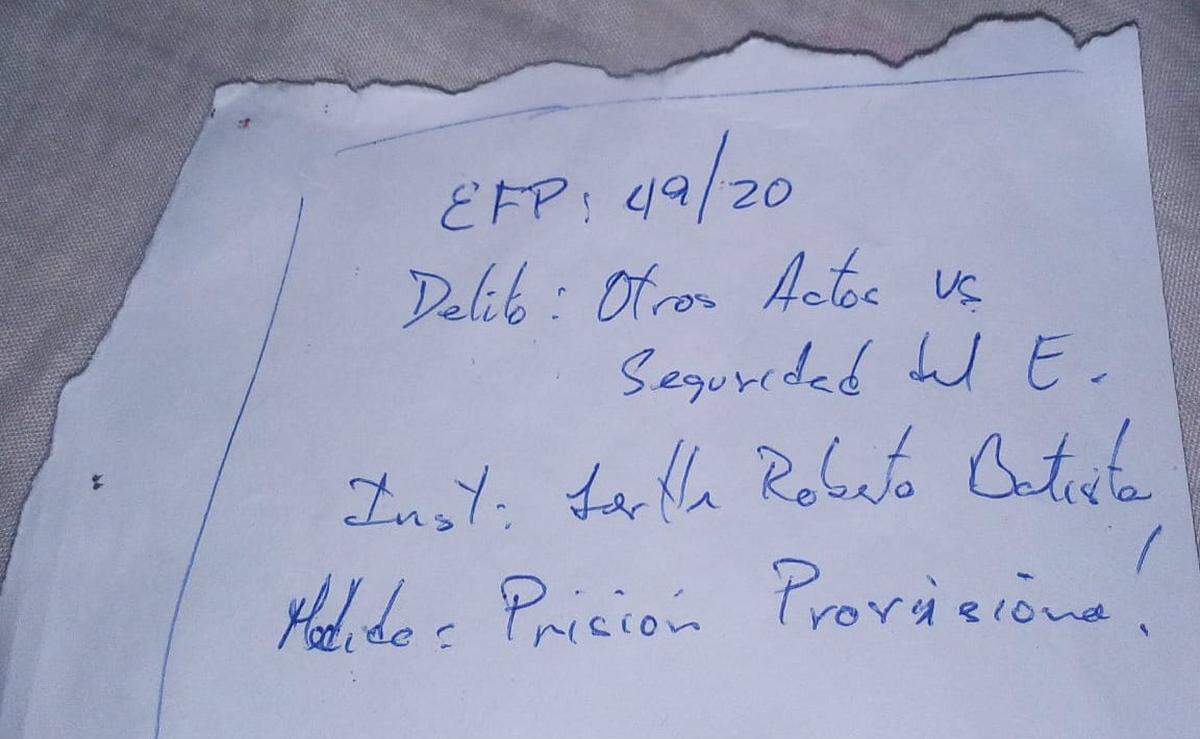 EFP: 49/20
Delito: Otros Actos vs
Seguridad del E.
Inst: Roberto Batista
Medida: Prisión Provisional